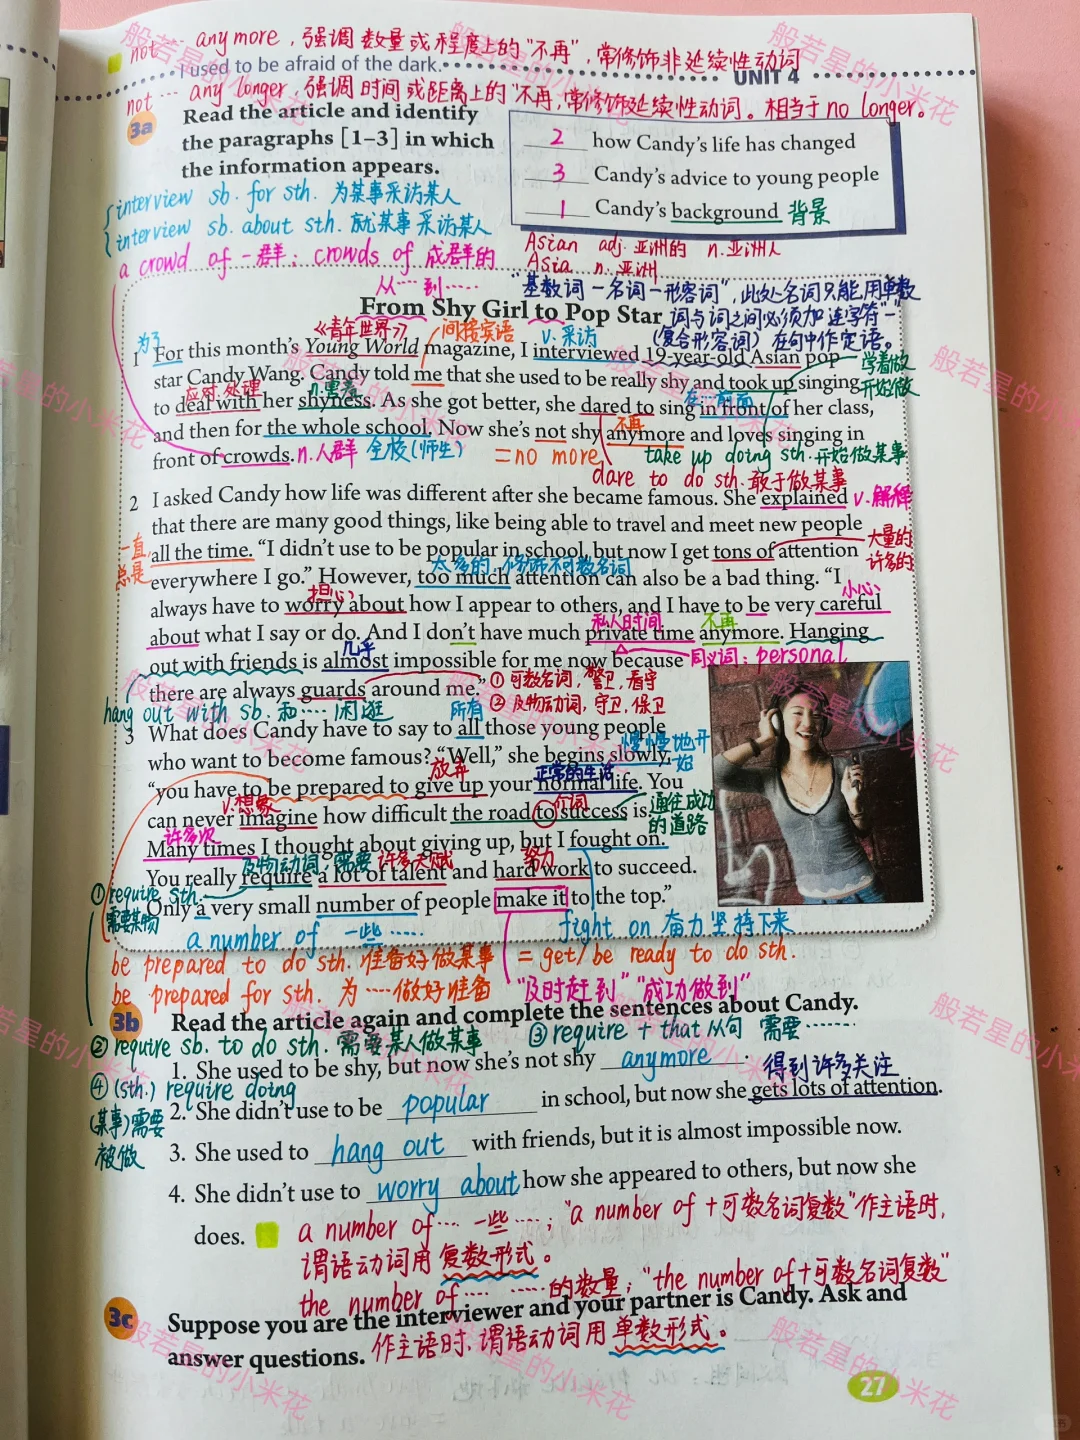 not … anymore，强调数量或程度上的“不再”，常修饰非延续性动词
I used to be afraid of the dark.
UNIT 4
not … any longer，强调时间或距离上的“不再，常修饰延续性动词。相当于no longer。
3a Read the article and identify
the paragraphs [1–3] in which
the information appears.
2 how Candy's life has changed
3 Candy's advice to young people
1 Candy's background 背景
interview sb. for sth. 为某事采访某人
interview sb. about sth. 就某事采访某人
a crowd of 一群； crowds of 成群的
Asian adj. 亚洲的 n. 亚洲人
Asia n. 亚洲
从……到……
“基数词-名词-形容词”，此处名词只能用单数
From Shy Girl to Pop Star 词与词之间必须加连字符“-”
《青年世界》 间接宾语 v. 采访 (复合形容词) 在句中作定语。
为了
1 For this month's Young World magazine, I interviewed 19-year-old Asian pop
学着做
star Candy Wang. Candy told me that she used to be really shy and took up singing
开始做
应对.处理 n.害羞 在…前面
to deal with her shyness. As she got better, she dared to sing in front of her class,
不再
and then for the whole school. Now she's not shy anymore and loves singing in
front of crowds. n.人群 全校(师生) = no more take up doing sth. 开始做某事
dare to do sth. 敢于做某事
2 I asked Candy how life was different after she became famous. She explained v. 解释
that there are many good things, like being able to travel and meet new people
一直，总是
all the time. “I didn't use to be popular in school, but now I get tons of attention
大量的
许多的
太多的 修饰不可数名词
everywhere I go.” However, too much attention can also be a bad thing. “I
担心 小心
always have to worry about how I appear to others, and I have to be very careful
私人时间 不再
about what I say or do. And I don't have much private time anymore. Hanging
几乎
out with friends is almost impossible for me now because 同义词：personal
there are always guards around me.” ① 可数名词，警卫，看守
② 及物动词，守卫，保卫
hang out with sb. 和……闲逛 所有
3 What does Candy have to say to all those young people
慢慢地开始
who want to become famous? “Well,” she begins slowly,
放弃 正常的生活
“you have to be prepared to give up your normal life. You
v.想象 介词
can never imagine how difficult the road to success is. 通往成功
的道路
许多次
Many times I thought about giving up, but I fought on.
及物动词，需要 许多天赋 努力
You really require a lot of talent and hard work to succeed.
Only a very small number of people make it to the top.”
① require sth.
需要某物
a number of 一些…… fight on 奋力坚持下来
be prepared to do sth. 准备好做某事 = get/be ready to do sth.
be prepared for sth. 为……做好准备 “及时赶到”“成功做到”
3b Read the article again and complete the sentences about Candy.
② require sb. to do sth. 需要某人做某事 ③ require + that 从句 需要……
1. She used to be shy, but now she's not shy anymore .
得到许多关注
④ (sth.) require doing
(某事)需要
被做
2. She didn't use to be popular in school, but now she gets lots of attention.
3. She used to hang out with friends, but it is almost impossible now.
4. She didn't use to worry about how she appeared to others, but now she
does. a number of … 一些…；“a number of +可数名词复数”作主语时，
谓语动词用复数形式。
the number of … ……的数量；“the number of+可数名词复数”
3c Suppose you are the interviewer and your partner is Candy. Ask and
answer questions. 作主语时，谓语动词用单数形式。
27
般若星的小米花